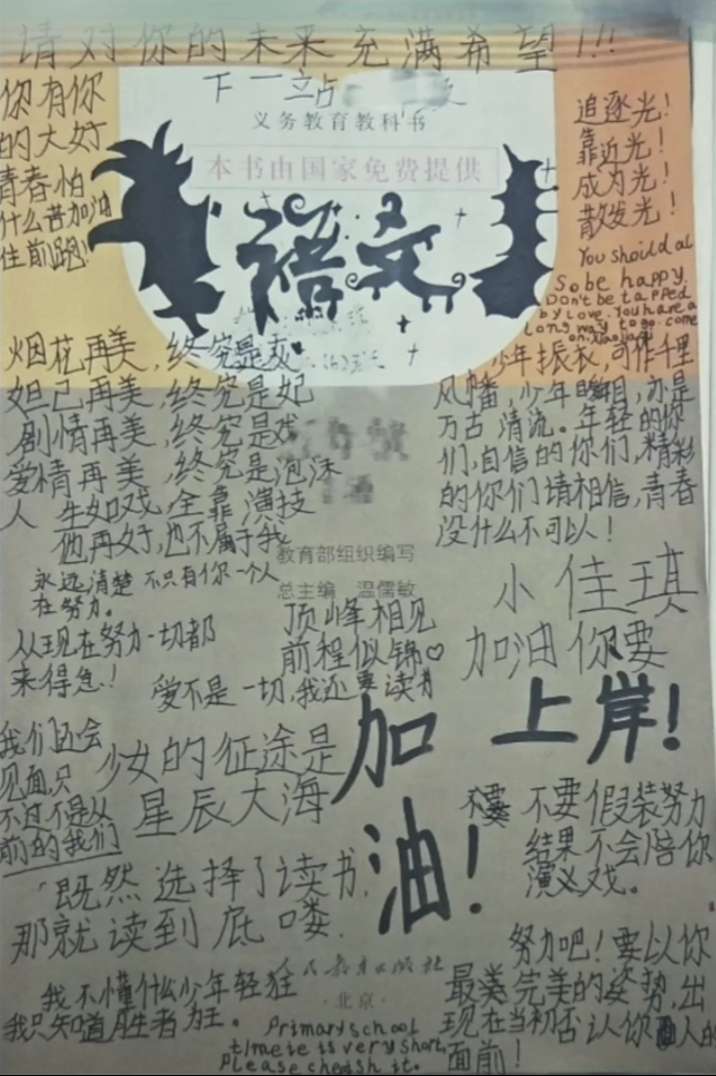 请对你的未来充满希望!!!
下一站
义务教育教科书
本书由国家免费提供
语文
你有你
的大好
青春怕
什么苦加油
住前跑!
追逐光!
靠近光!
成为光!
散发光!
You shoild al
So be happy.
Don't be tapped
by love. You have a
long way to go. come
on.
烟花再美,终究是灰
妲己再美,终究是妃
剧情再美,终究是戏
爱情再美,终究是泡沫
人生如戏,全靠演技
他再好,也不属于我
少年振衣,可作千里
风幡,少年瞬目,亦是
万古清流。年轻的你
们,自信的你们,精彩
的你们请相信,青春
没什么不可以!
教育部组织编写
总主编 温儒敏
永远清楚不只有你一个人
在努力。
从现在努力一切都
来得急!
顶峰相见
前程似锦♡
爱不是一切,我还要读书
小佳琪
加油你要
上岸!
加
油!
我们还会
见面,只
不过不是从
前的我们
少女的征途是
星辰大海
不要假装努力
结果不会陪你
演义戏。
既然选择了读书,
那就读到底喽.
努力吧!要以你
最美完美的姿势,出
现在当初否认你面人的
面前!
人民教育出版社
·北京·
我不懂什么少年轻狂
我只知道胜者为王。
Primary school
timeie is very short,
please cheaish it.